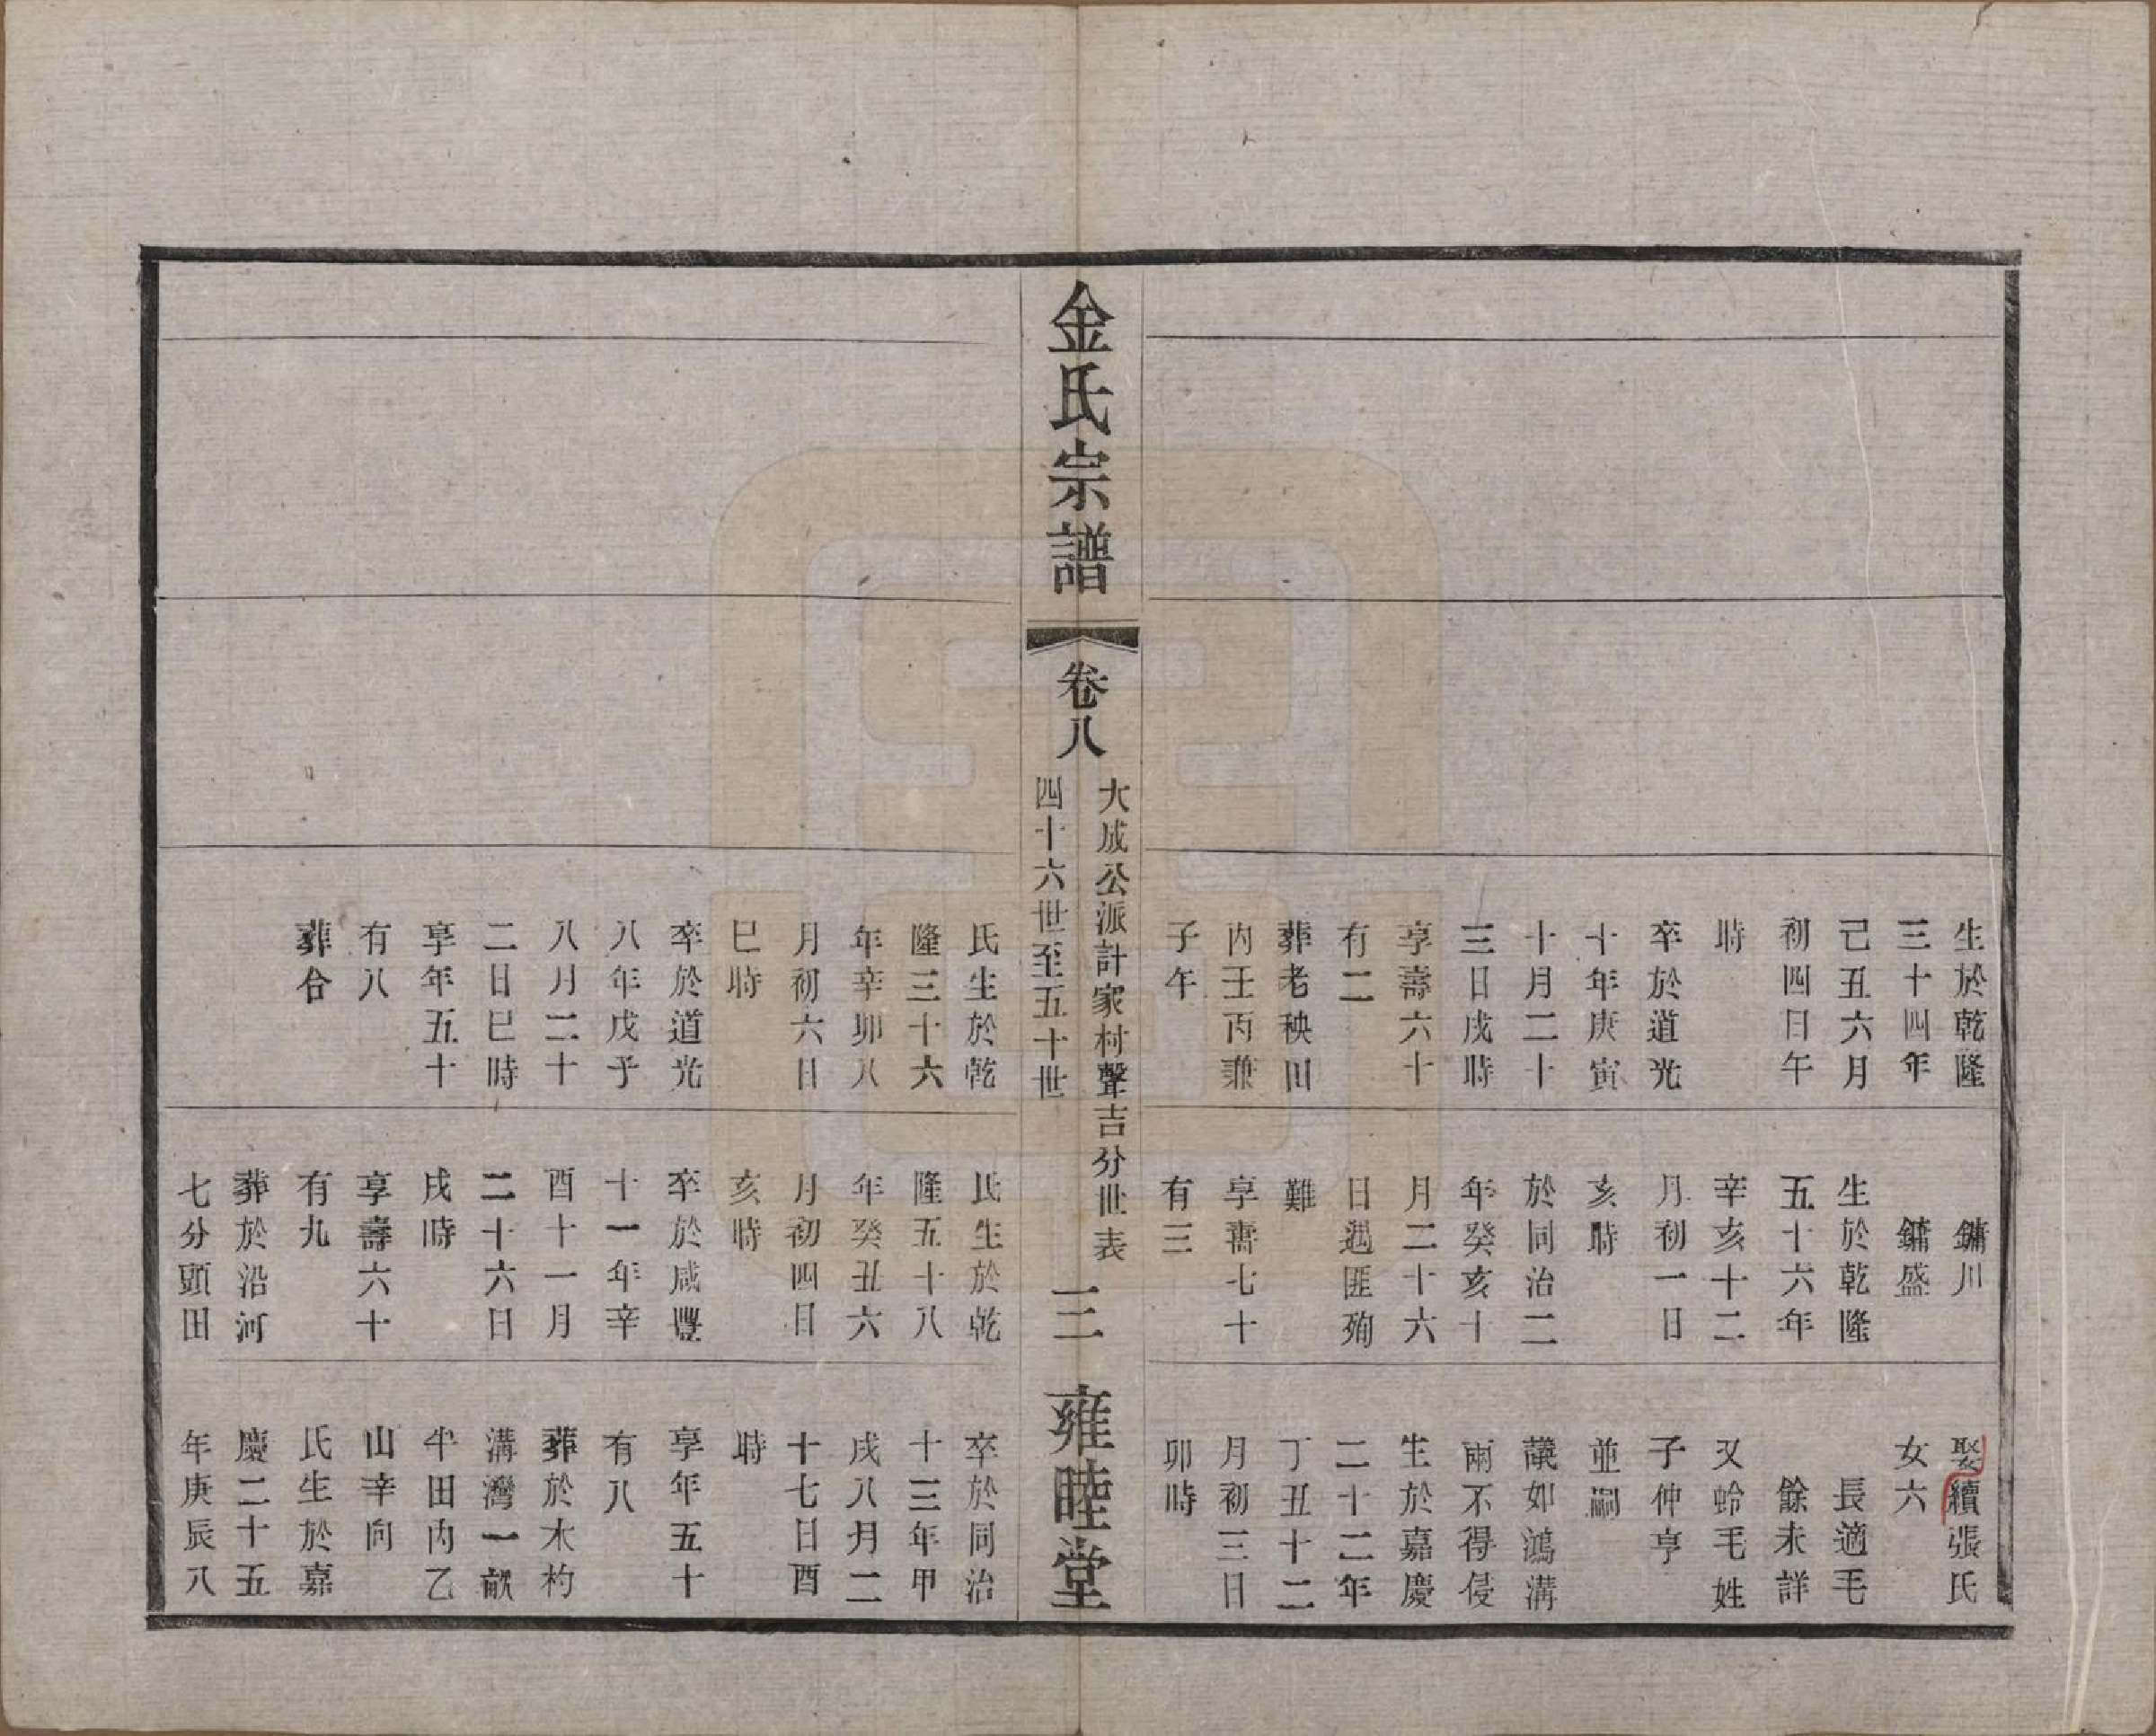 生於乾隆
三十四年
己丑六月
初四日午
時
卒於道光
十年庚寅
十月二十
三日戌時
享壽六十
有二
葬老秧田
內壬丙兼
子午
鏞川
鏞盛
生於乾隆
五十六年
辛亥十二
月初一日
亥時
於同治二
年癸亥十
月二十六
日遇匪殉
難
享壽七十
有三
娶續張氏
女六
長適毛
餘未詳
又蛉毛姓
子仲亨
並嗣
議如鴻溝
兩不得侵
生於嘉慶
二十二年
丁丑十二
月初三日
卯時
金氏宗譜
卷八
大成公派計家村聲吉分世表
四十六世至五十世
三
雍睦堂
氏生於乾
隆三十六
年辛卯八
月初六日
巳時
卒於道光
八年戊子
八月二十
二日巳時
享年五十
有八
葬合
氏生於乾
隆五十八
年癸丑六
月初四日
亥時
卒於咸豐
十一年辛
酉十一月
二十六日
戌時
享壽六十
有九
葬於沿河
七分頭田
卒於同治
十三年甲
戌八月二
十七日酉
時
享年五十
有八
葬於木杓
溝灣一畝
半田內乙
山辛向
氏生於嘉
慶二十五
年庚辰八